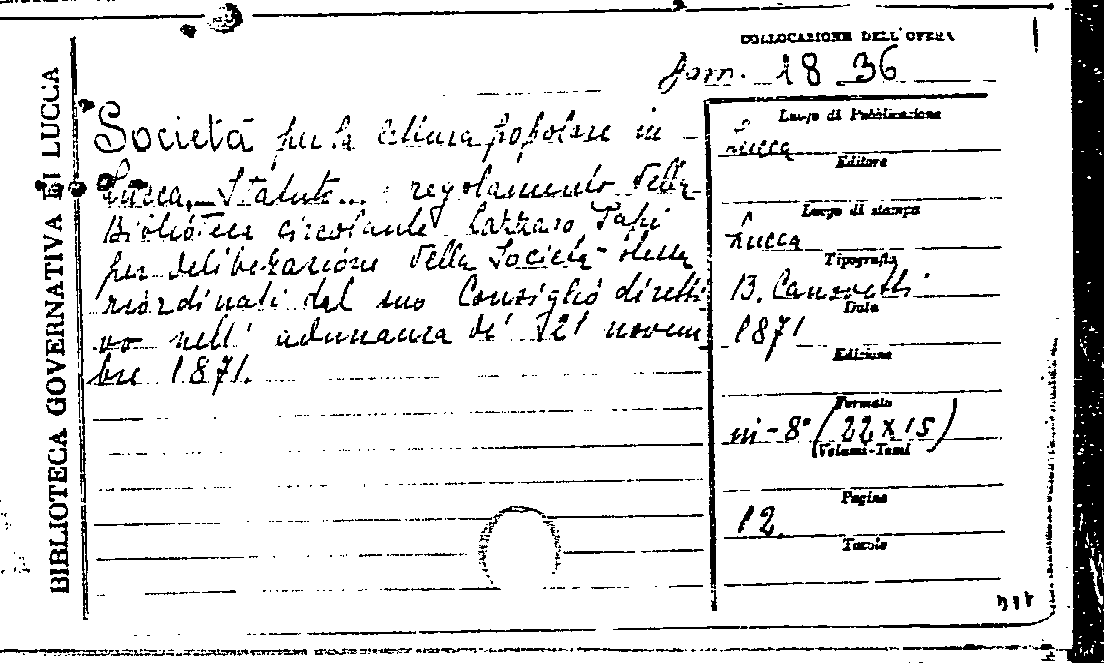 BIBLIOTECA GOVERNATIVA DI LUCCA
COLLOCAZIONE DELL'OPERA
Jom. 18 36
Società per la cultura popolare in
Lucca. Statuto... regolamento della
Biblioteca circolante Lazzaro Papi
per deliberazione della Società stessa
riordinati dal suo Consiglio diretti
vo nell' adunanza de' 121 novem
bre 1871.
Luogo di Pubblicazione
Lucca
Editore
Luogo di stampa
Lucca
Tipografia
B. Canovetti
Data
1871
Edizione
Formato
in-8° (22 x 15)
Volumi-Tomi
Pagine
12
Tavole